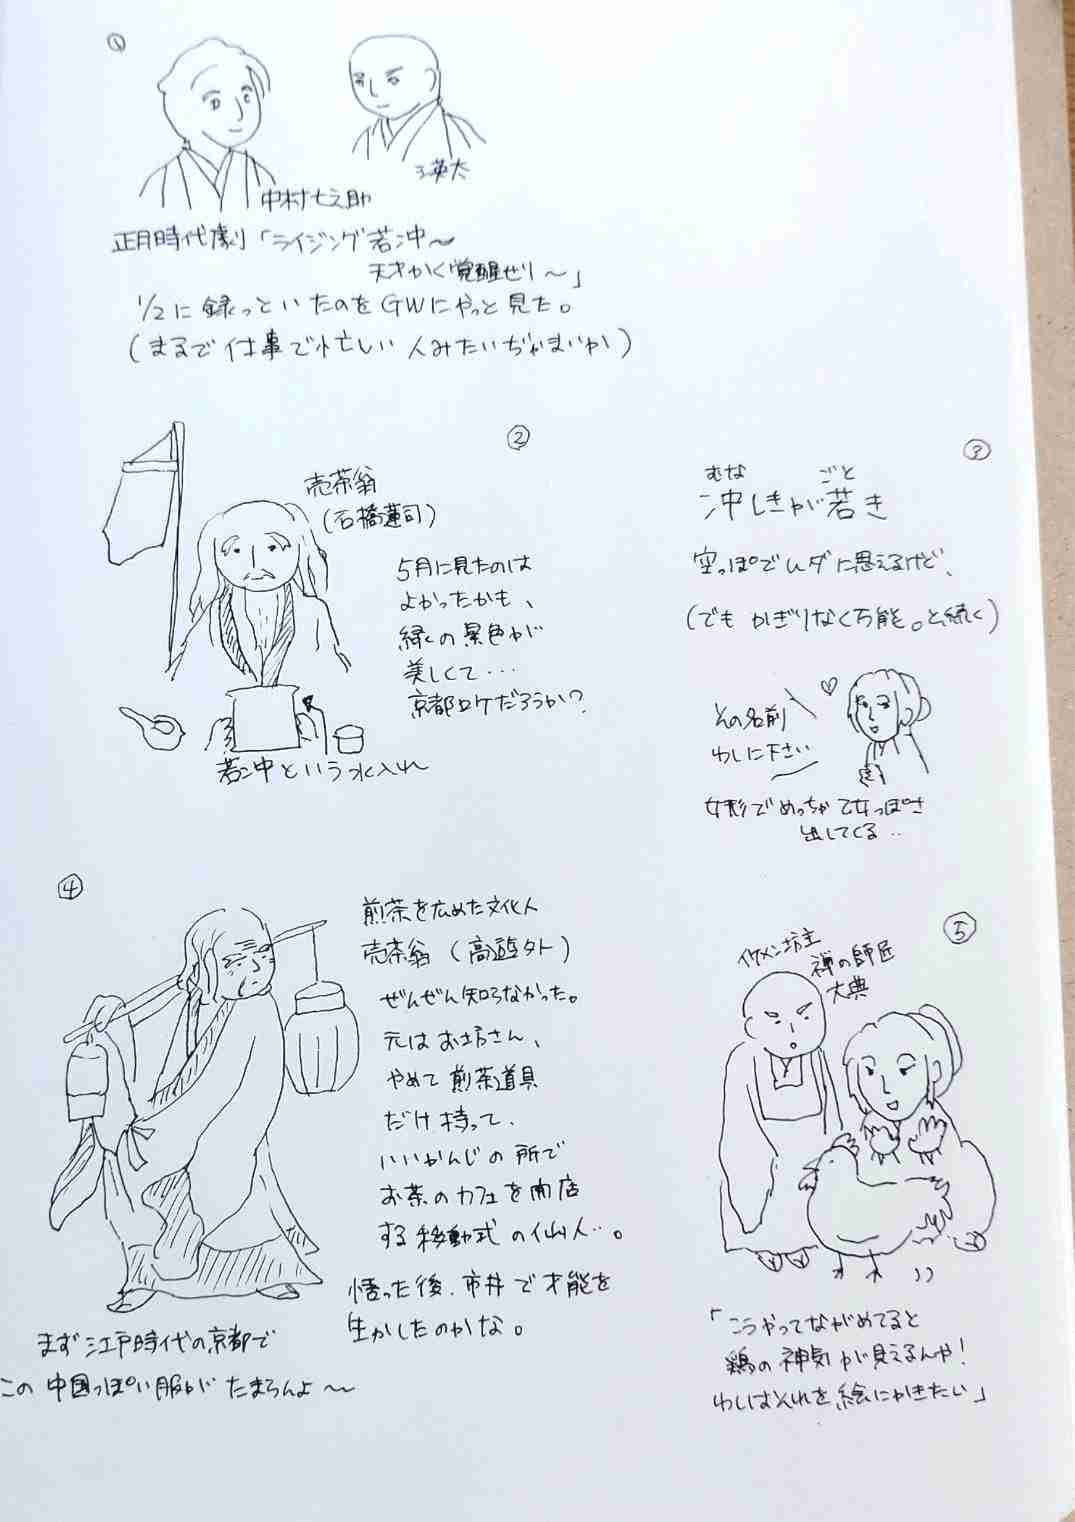 ①
中村七之助
永英太
正月時代劇「ライジング若冲〜
天才かく覚醒せり〜」
1/2に録っといたのをGWにやっと見た。
(まるで仕事で忙しい人みたいぢゃまいか)
②
売茶翁
(石橋蓮司)
5月に見たのは
よかったかも、
緑の景色が
美しくて・・・
京都ロケだろうか?
若冲という水入れ
③
むな ごと
冲しきが若き
空っぽでムダに思えるけど、
(でもかぎりなく万能。と続く)
その名前
わしに下さい
女形でめっちゃ乙女っぽさ
出してくる・・
④
煎茶を広めた文化人
売茶翁(高遊外)
ぜんぜん知らなかった。
元はお坊さん、
やめて煎茶道具
だけ持って、
いいかんじの所で
お茶のカフェを開店
する移動式の仙人・・。
悟った後、市井で才能を
生かしたのかな。
まず江戸時代の京都で
この中国っぽい服がたまらんよ〜
⑤
イケメン坊主
禅の師匠
大典
「こうやってながめてると
鶏の神気が見えるんや!
わしはそれを絵にかきたい」